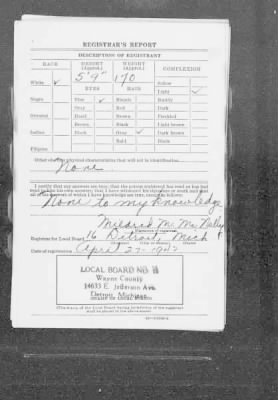 REGISTRAR'S REPORT
DESCRIPTION OF REGISTRANT
RACE HEIGHT (Approx.) WEIGHT (Approx.) COMPLEXION
5' 9" 170
Sallow
White ✓ EYES HAIR Light ✓
Negro Blue ✓ Blonde Ruddy
Gray Red Dark
Oriental Hazel Brown Freckled
Brown Black Light brown
Indian Black Gray ✓ Dark brown
Bald Black
Filipino
Other obvious physical characteristics that will aid in identification
None
I certify that my answers are true; that the person registered has read or has had
read to him his own answers; that I have witnessed his signature or mark and that
all of his answers of which I have knowledge are true, except as follows:
None to my knowledge
Mildred M. McNalley
Registrar for Local Board 16 Detroit Mich
Date of registration April 27 - 1942
LOCAL BOARD NO.
Wayne County
14633 E. Jefferson Ave.
Detroit, Michigan
(STAMP OF LOCAL BOARD)
(The stamp of the Local Board having jurisdiction of the registrant
shall be placed in the above space)